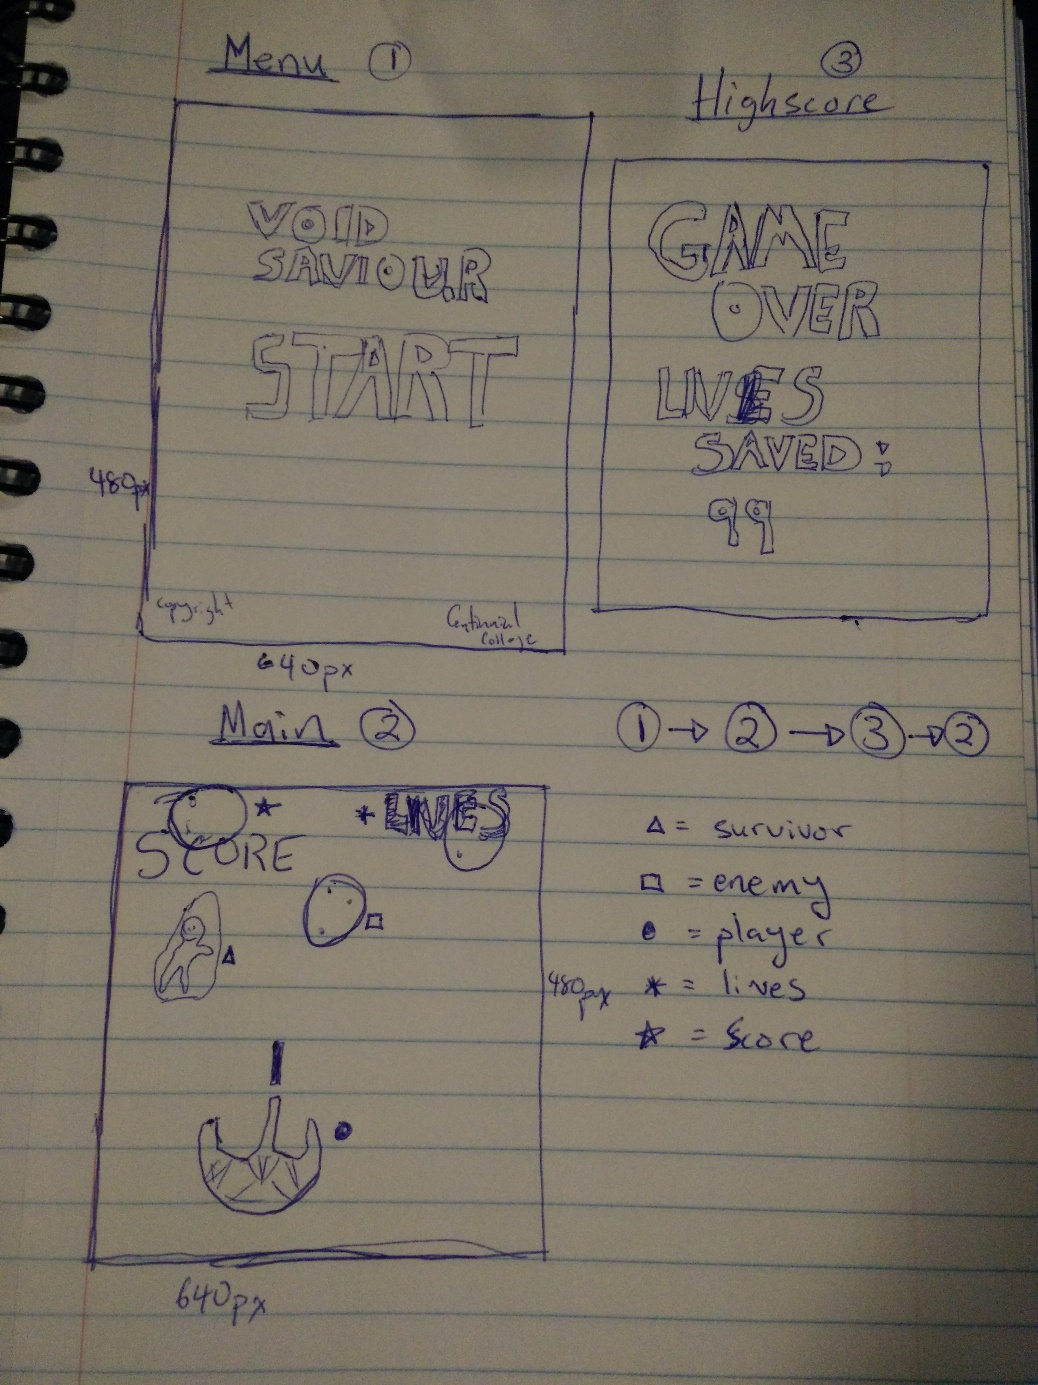 Menu 1
VOID
SAVIOUR
START
480px
copyright
Centennial
College
640px
3
Highscore
GAME
OVER
LIVES
SAVED:
99
Main 2
1 → 2 → 3 → 2
★ * LIVES
SCORE
480px
640px
△ = survivor
□ = enemy
● = player
* = lives
★ = Score